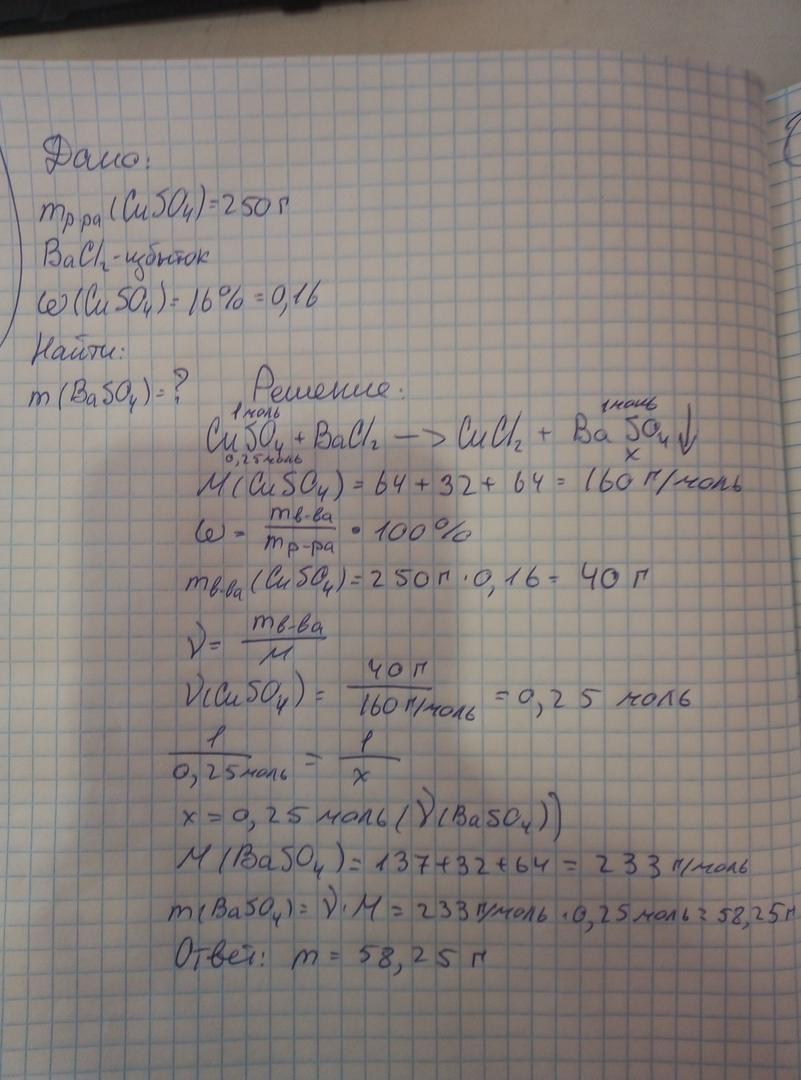 Дано:
mр-ра(CuSO₄)=250г
BaCl₂-избыток
ω(CuSO₄)=16%=0,16
Найти:
m(BaSO₄)=?
Решение:
1моль 1моль
CuSO₄+BaCl₂—>CuCl₂+BaSO₄↓
0,25моль x
M(CuSO₄)=64+32+64=160г/моль
ω= mв-ва/mр-ра • 100%
mв-ва(CuSO₄)=250г·0,16=40г
ν= mв-ва/M
ν(CuSO₄)= 40г/160г/моль =0,25 моль
1/0,25моль = 1/x
x=0,25 моль(ν(BaSO₄))
M(BaSO₄)=137+32+64=233г/моль
m(BaSO₄)=ν·M=233г/моль·0,25моль=58,25г
Ответ: m=58,25г